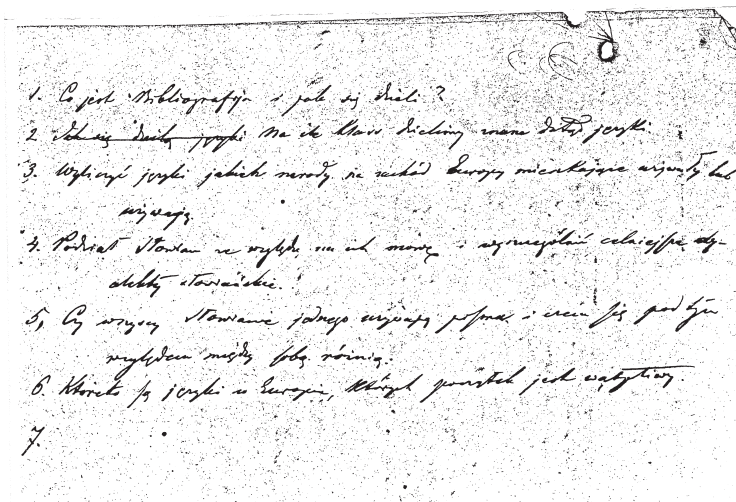 1. Co jest Bibliografija i jak się dzieli?
2. Jak się dzielą języki Na ile klass dzielimy znane dotąd języki.
3. Wyliczyć języki jakich narody na zachód Europy mieszkające używały lub
używają.
4. Podział Słowian ze względu na ich mowę i wyszczególnić celniejsze dya-
lekty słowiańskie.
5, Czy wszyscy Słowianie jednego używają pisma i czem się pod tym
względem między sobą różnią.
6. Któreto są języki w Europie, których początek jest wątpliwy.
7.